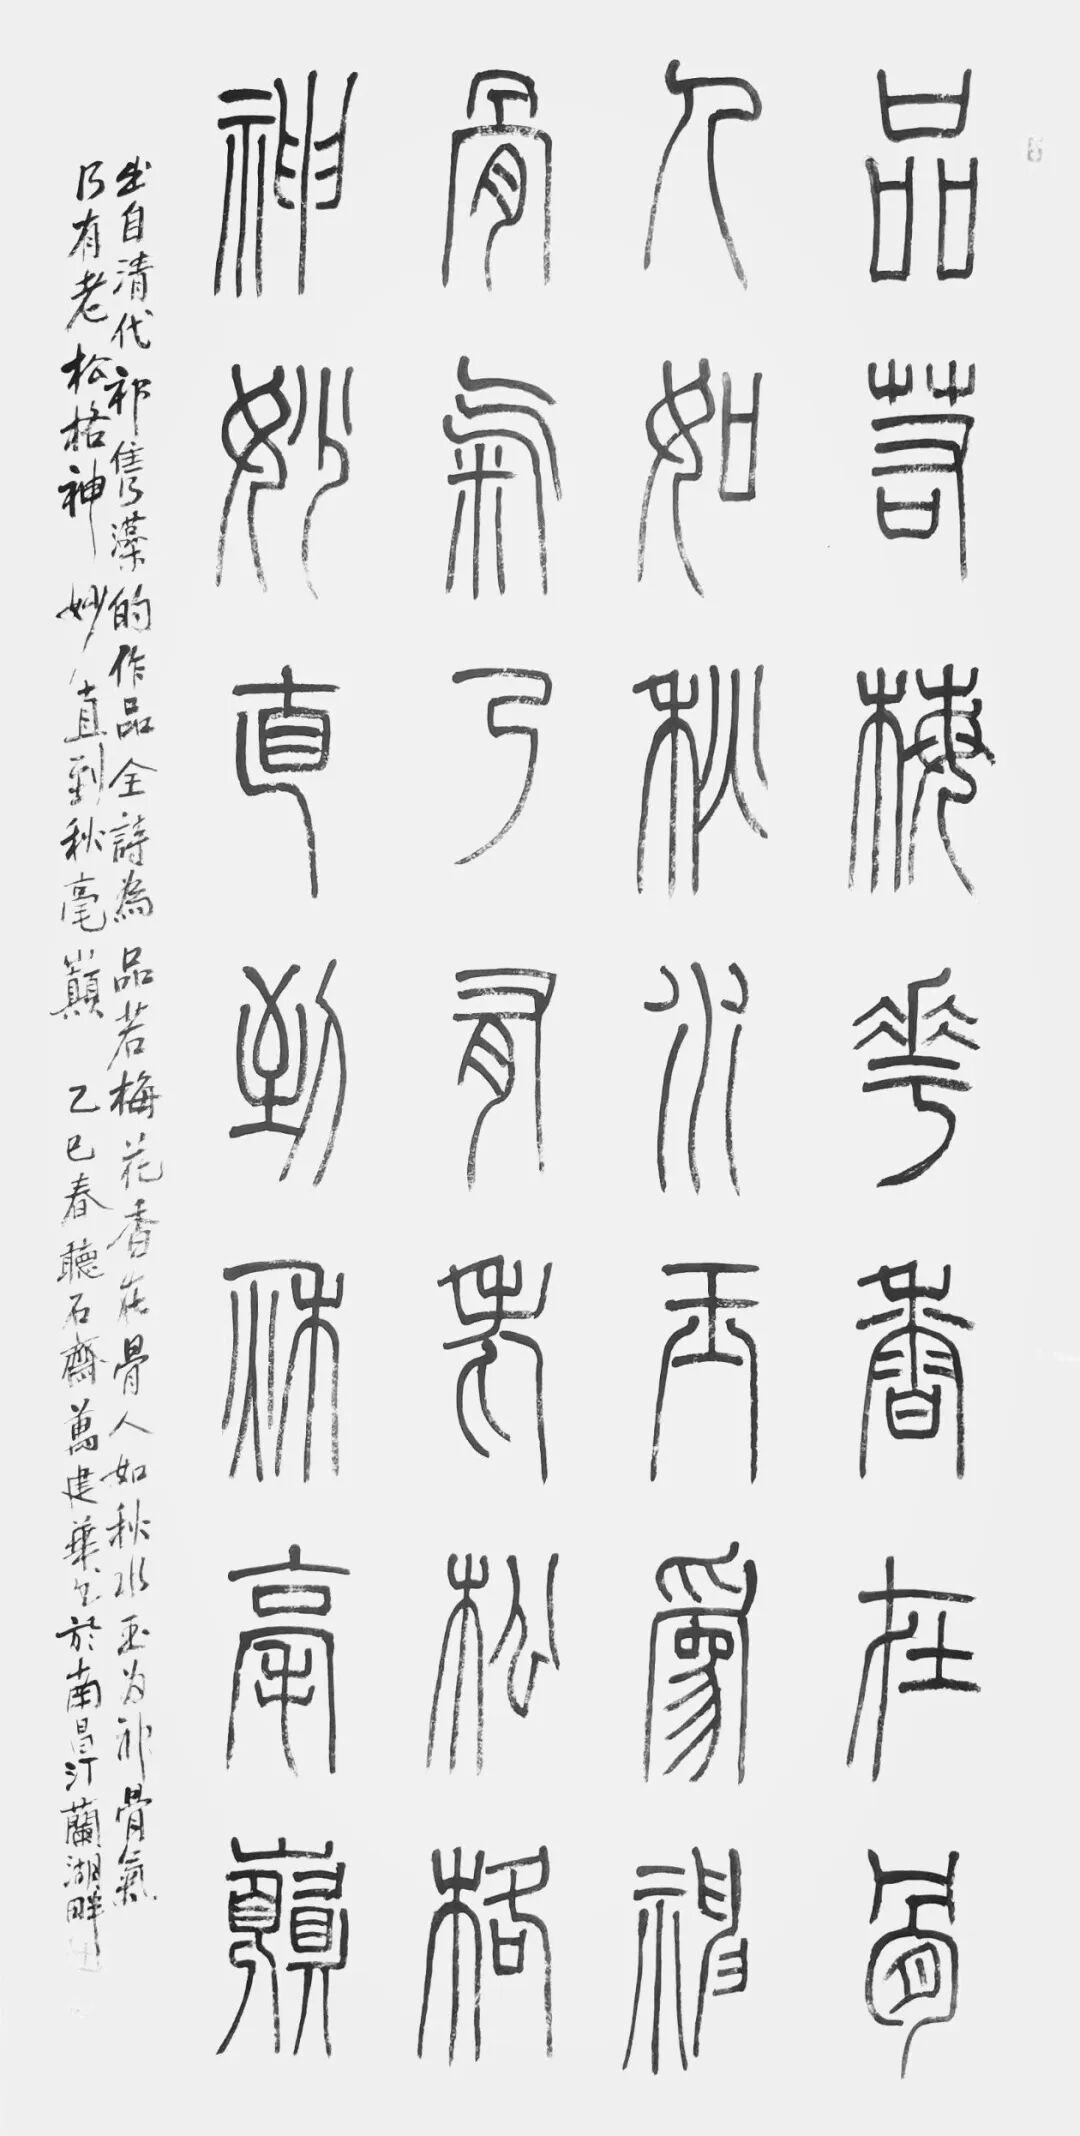 品若梅花香在骨
人如秋水玉為神
骨氣乃有老松格
神妙直到秋毫巔
出自清代祁寯藻的作品全詩為品若梅花香在骨人如秋水玉为神骨氣
乃有老松格神妙直到秋毫巔 乙巳春聽石齋萬建華书於南昌汀蘭湖畔